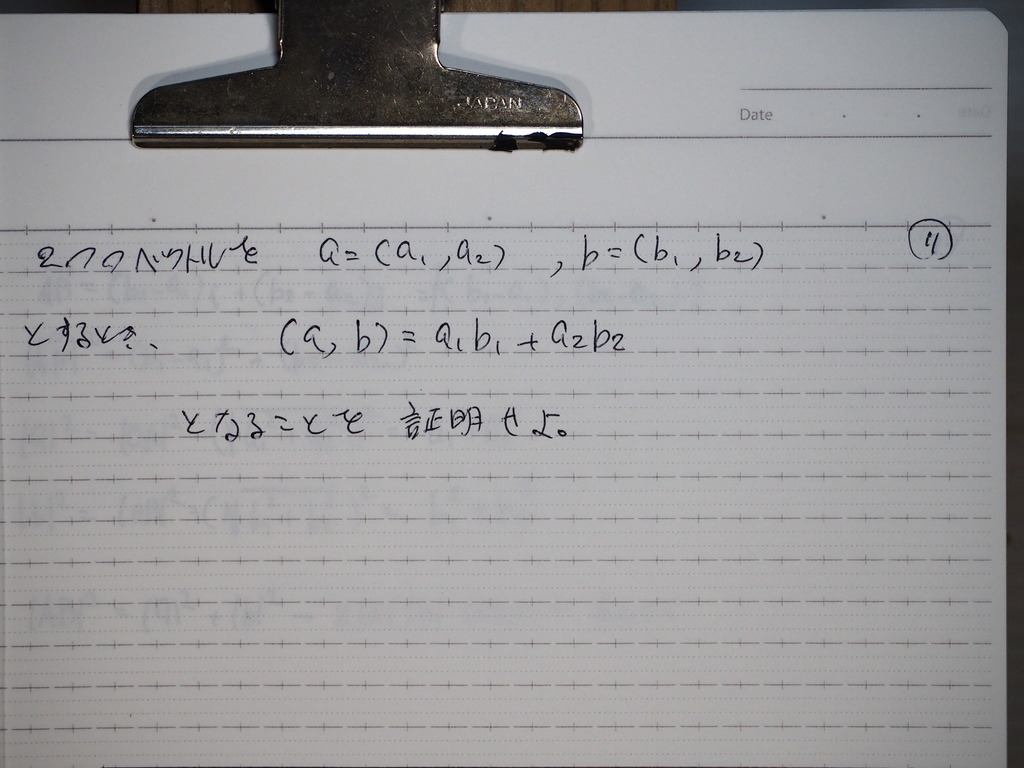 JAPAN
Date
2つのベクトルを a=(a₁,a₂) , b=(b₁,b₂) ⑪
とするとき、 (a,b)=a₁b₁+a₂b₂
となることを 証明せよ。